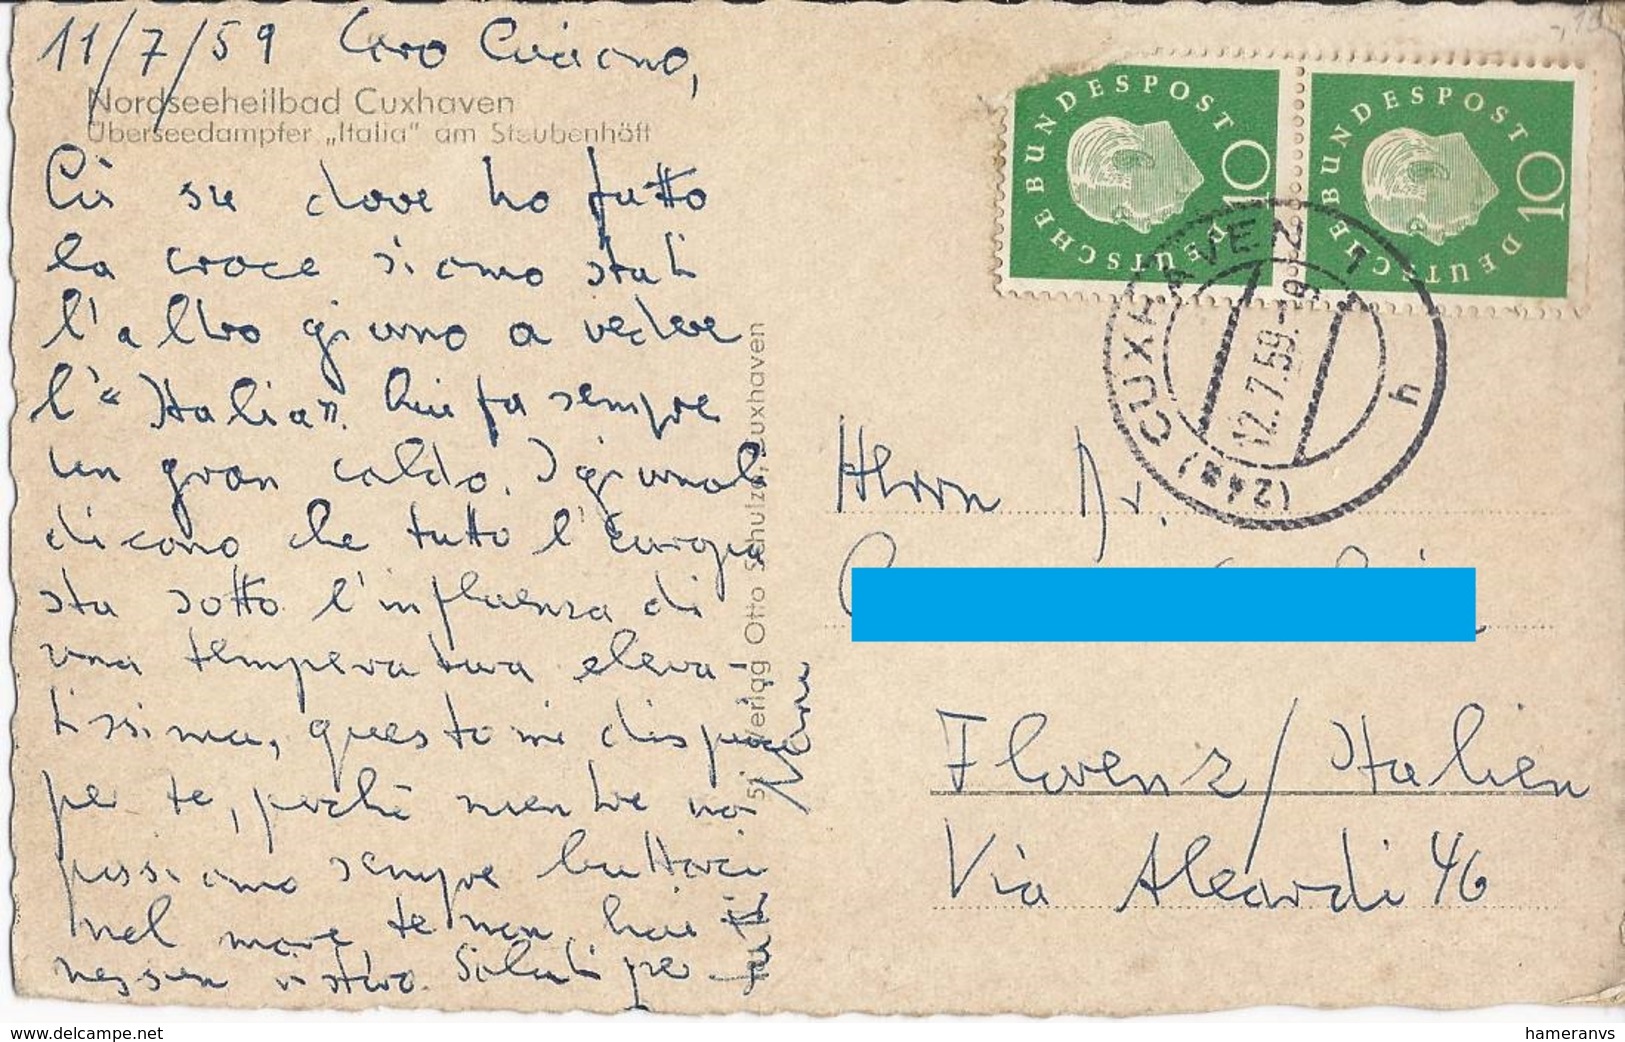 11/7/59 Caro Luciano,
Nordseeheilbad Cuxhaven
Überseedampfer „Italia" am Steubenhöft
dove ho fatto
la croce siamo stati
l'altro giorno a vedere
l'"Italia". Qui fa sempre
un gran caldo. I giornali
dicono che tutto l'Europa
sta sotto l'influenza di
una temperatura eleva-
tissima, questo mi dispiace
per te, perchè mentre noi
possiamo sempre buttarci
nel mare te non hai
nessun ristoro. Saluti per
Verlag Otto Schulze, Cuxhaven
DEUTSCHE BUNDESPOST
10
DEUTSCHE BUNDESPOST
10
(24a) CUXHAVEN 1
12.7.59
h
Herrn Dr.
Florenz/Italien
Via Aleardi 46
www.delcampe.net
hameranvs